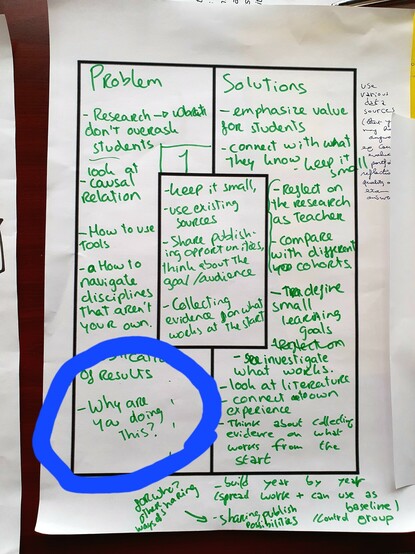 Problem
- Research →
don't overask
students
look at
- causal
relation
- How to use
Tools
- How to
navigate
disciplines
that aren't
your own.
of Results
- Why are
you doing
This?
1
- keep it small,
- use existing
sources
- Share publish-
ing opportunities,
think about the
goal /audience
- Collecting
evidence on what
works at the start
Solutions
- emphasize value
for students
- connect with what
they know
- keep it
small
- Reflect on
the research
as Teacher
- compare
with different
cohorts.
- define
small
learning
goals
- Reflection
- investigate
what works.
- look at literature
- connect to own
experience
- Think about collecting
evidence on what
works from the
start
- build year by year
(spread work + can use as
baseline /
control group
- sharing publish
possibilities
for who?
other sharing
ways of
use
various
data
sources